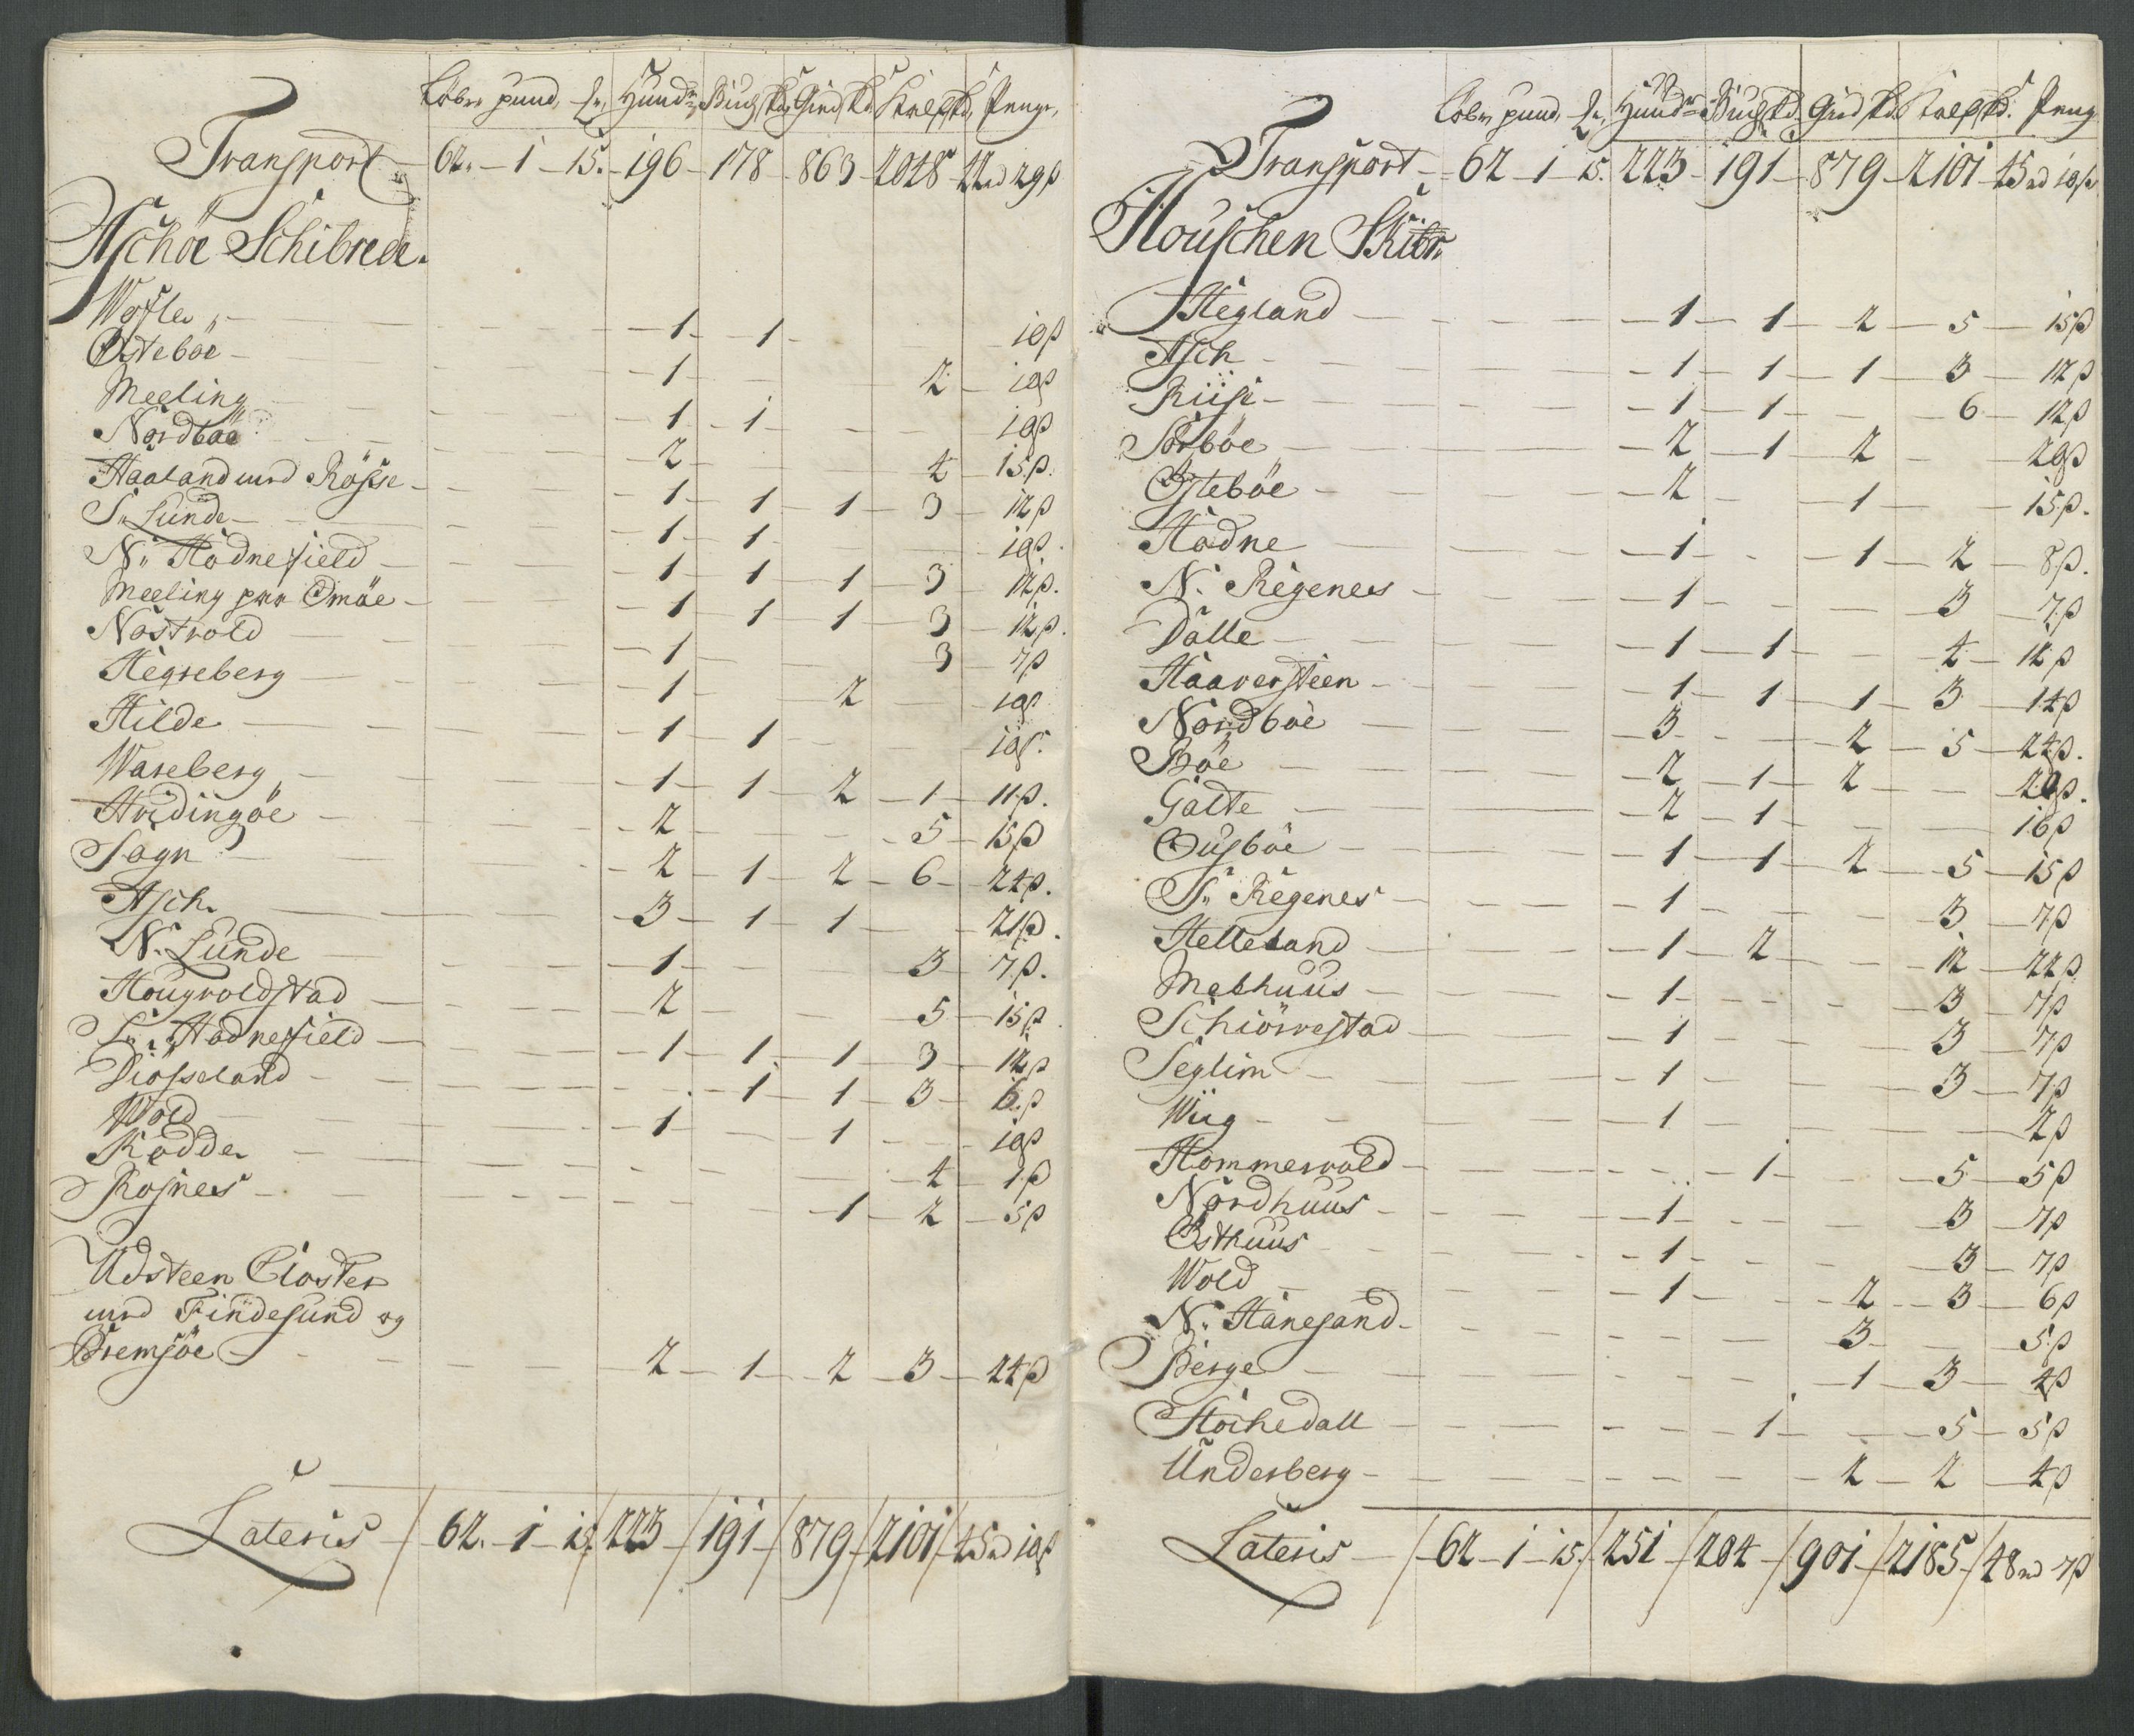 Løbn pund, Hundr Bug bd Gird bd Skrep bd Penge
Transport — 62. — 1 — 15. — 196 — 178 — 863 — 2048 — 42 rd 29 ß
Aschøe Schibrede.
Wostle — 1 — 1 — 10 ß
Østebøe — 1 — 2 — 10 ß
Meeling — 1 — 1 — 10 ß
Nordbøe — 2 — 4 — 15 ß.
Haaland med Røsse — 1 — 1 — 1 — 3 — 12 ß
S: Lunde — 1 — 1 — 10 ß.
N: Hodnefield — 1 — 1 — 1 — 3 — 12 ß.
Meeling paa Omøe — 1 — 1 — 1 — 3 — 12 ß.
Nøstvold — 1 — 3 — 7 ß
Hegreberg — 1 — 2 — 10 ß
Hilde — 1 — 1 — 10 ß.
Wareberg — 1 — 1 — 2 — 1 — 11 ß.
Hvidingøe — 2 — 5 — 15 ß
Sogn — 2 — 1 — 2 — 6 — 24 ß.
Asch — 3 — 1 — 1 — 21 ß.
N: Lunde — 1 — 3 — 7 ß.
Hougvoldstad — 2 — 5 — 15 ß.
S: Hodnefield — 1 — 1 — 1 — 3 — 12 ß
Diøsseland — 1 — 1 — 3 — 6 ß
Wold — 1 — 1 — 10 ß
Kodde — 4 — 1 ß
Rosnes — 1 — 2 — 5 ß
Udsteen Closter
med Findesund og
Bremsøe — 2 — 1 — 2 — 3 — 24 ß
Lateris — 62. — 1 — 15. 223 — 191 — 879 — 2101 — 45 rd 10 ß
Løbn pund, Hundr Bug bd. Gird bd. Skrep bd. Peng
Transport — 62 — 1 — 15. 223 — 191 — 879 — 2101 — 45 rd 10 ß
Houschen Skibr
Hegland — 1 — 1 — 2 — 5 — 15 ß
Asch — 1 — 1 — 1 — 3 — 12 ß
Riise — 1 — 1 — 6 — 12 ß
Sørbøe — 2 — 1 — 2 — 20 ß
Østebøe — 2 — 1 — 15 ß.
Hodne — 1 — 1 — 2 — 8 ß.
N: Regenes — 1 — 3 — 7 ß
Dalle — 1 — 1 — 4 — 12 ß
Haaversteen — 1 — 1 — 1 — 3 — 14 ß
Nordbøe — 3 — 2 — 5 — 24 ß.
Bøe — 2 — 1 — 2 — 20 ß.
Galte — 2 — 1 — 16 ß
Dusbøe — 1 — 1 — 2 — 5 — 15 ß
S: Regenes — 1 — 3 — 7 ß
Helleland — 1 — 2 — 12 — 22 ß
Melhuus — 1 — 3 — 7 ß
Schiørvestad — 1 — 3 — 7 ß
Seglim — 1 — 3 — 7 ß
Wiig — 1 — 2 ß
Hommervold — 1 — 5 — 5 ß
Nordhuus — 1 — 3 — 7 ß
Østhuus — 1 — 3 — 7 ß
Wold — 1 — 2 — 3 — 6 ß
N: Hanesand — 3 — 5 ß
Berge — 1 — 3 — 4 ß
Hochedall — 1 — 5 — 5 ß
Underberg — 2 — 2 — 4 ß
Lateris — 62 — 1 — 15. 251 — 204 — 901 — 2185 — 48 rd 7 ß